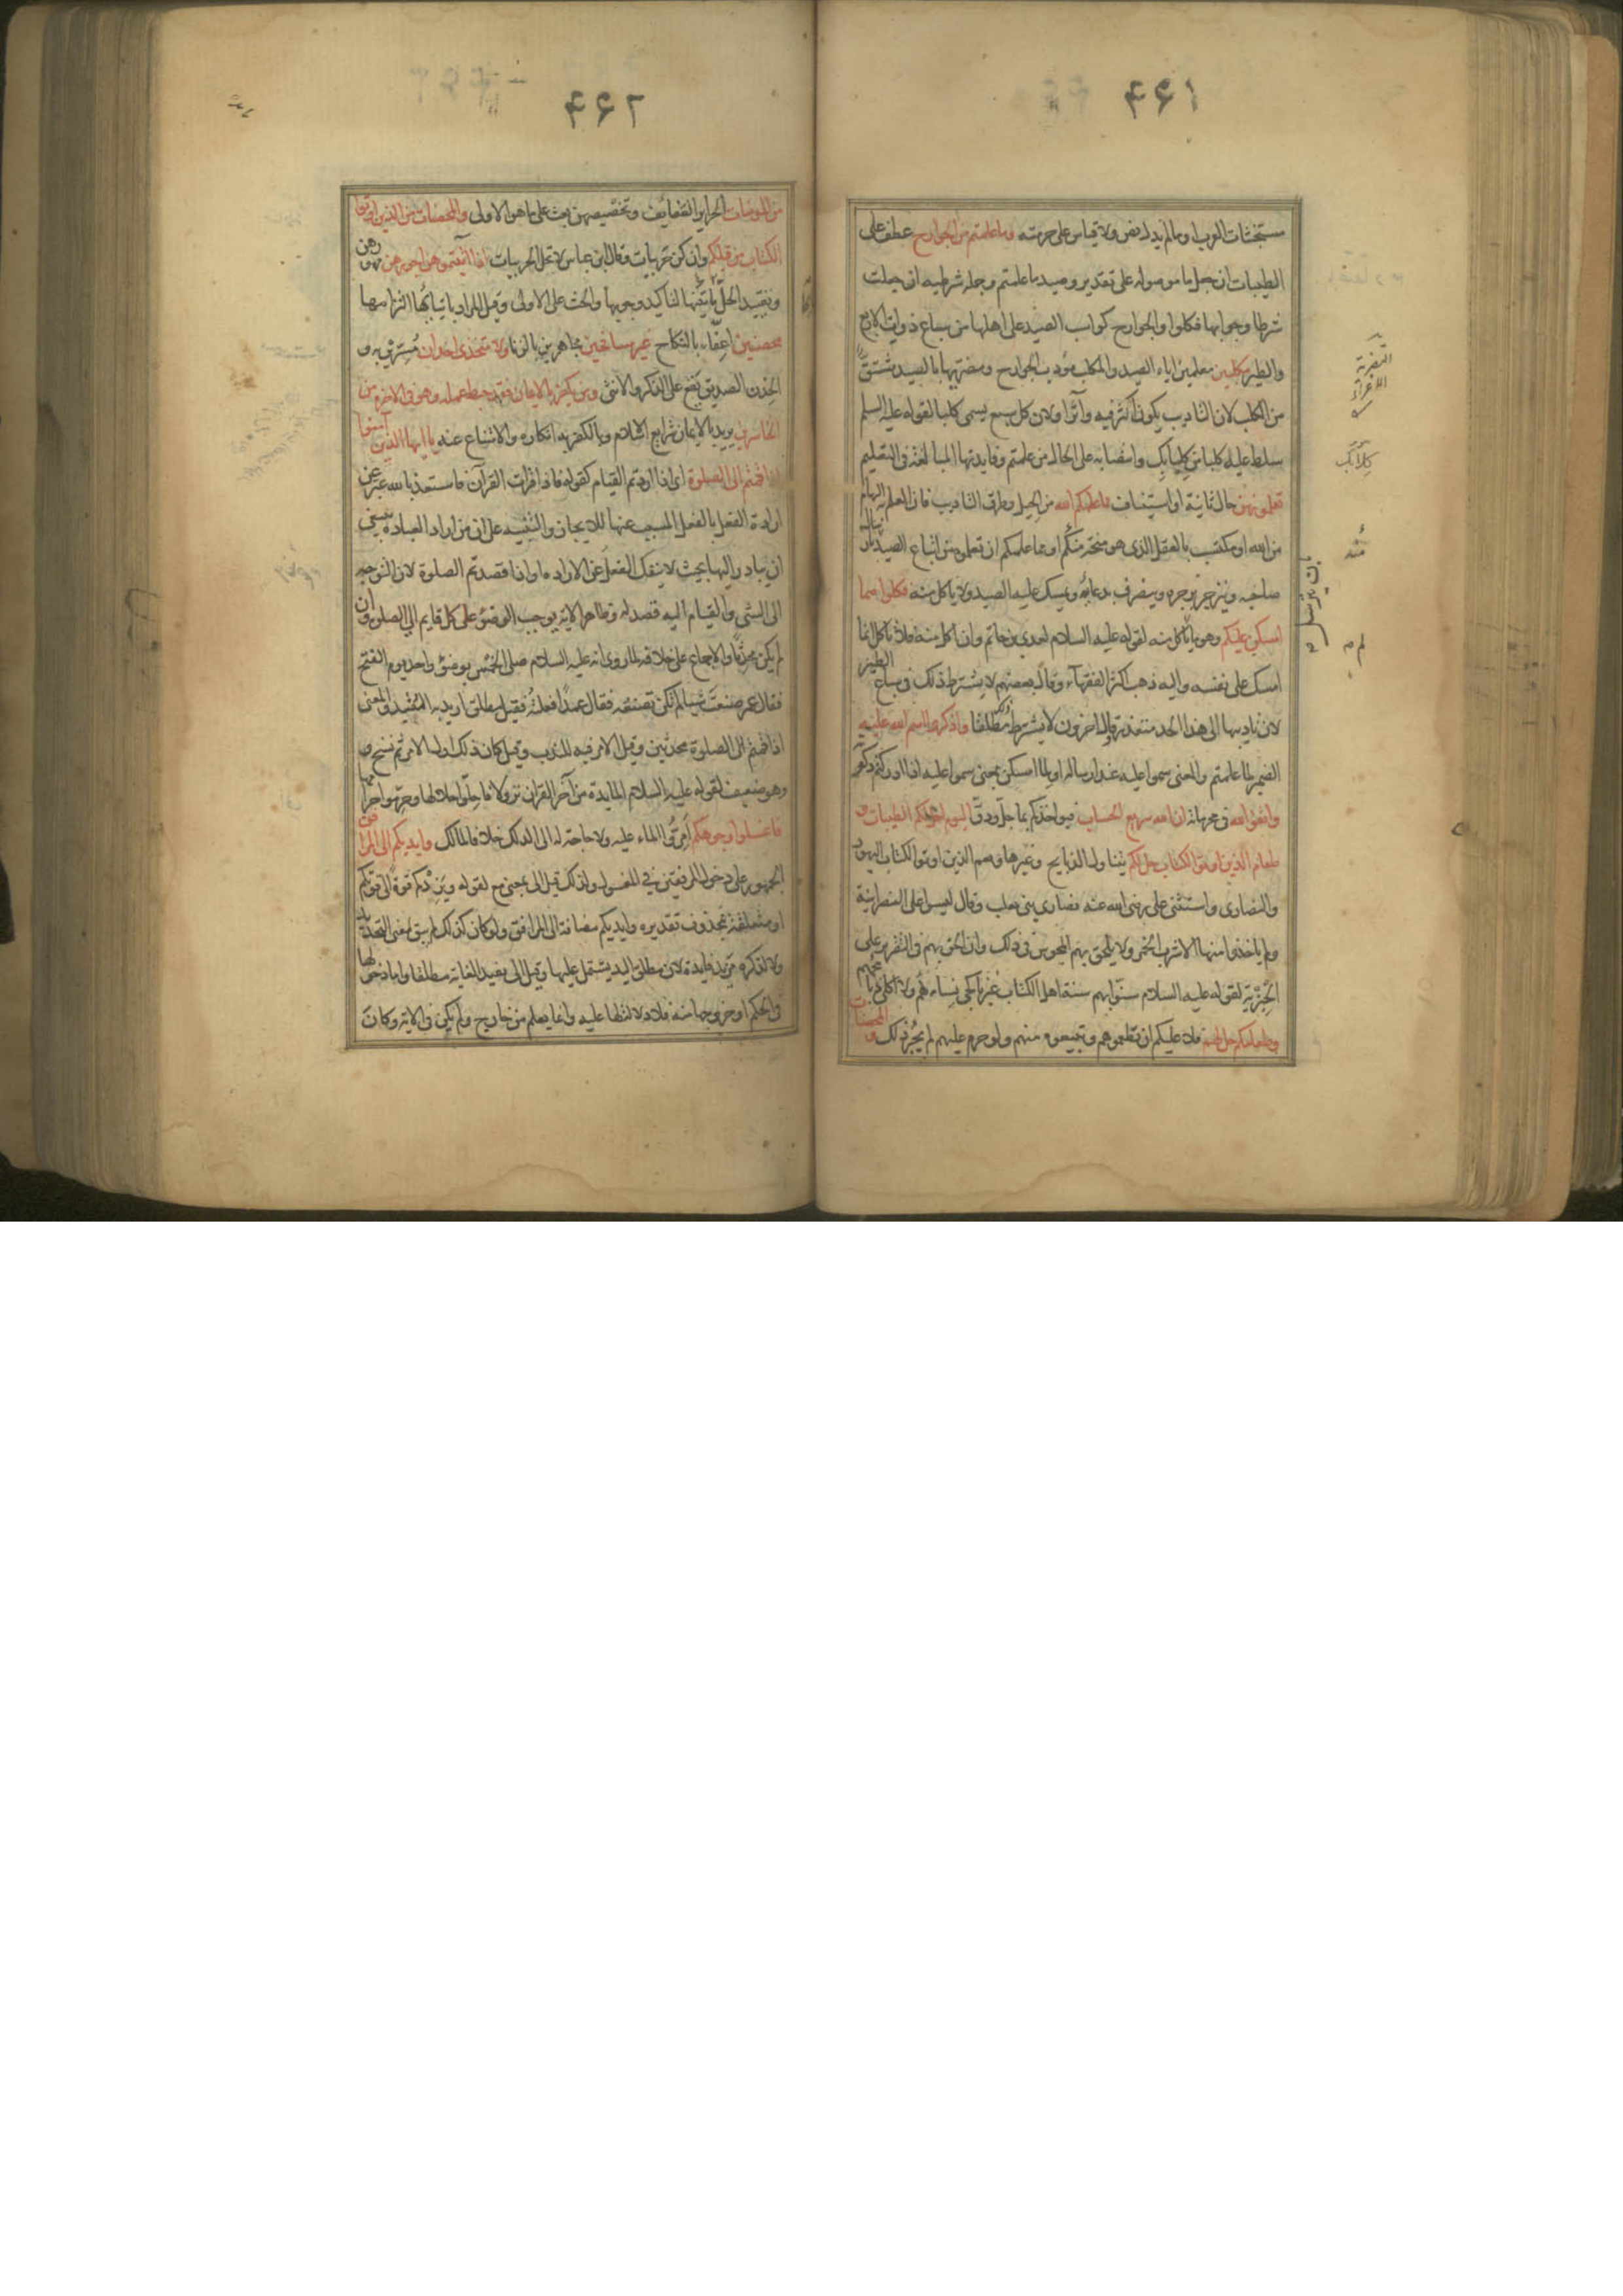 ۴۶۱
مستخبثات العرب او ما لم يدل نص ولا قياس على حرمته وما علمتم من الجوارح عطف على
الطيبات ان جعل ما موصولة على تقدير وصيد ما علمتم وجملة شرطية ان جعلت
شرطا وجوابها فكلوا والجوارح كواسب الصيد على اهلها من سباع ذوات الاربع
والطير مكلبين معلمين اياه الصيد والمكلب مؤدب الجوارح ومضريها بالصيد مشتق
من الكلب لان التاديب يكون اكثر فيه وآثرا ولان كل سبع يسمى كلبا لقوله عليه السلم
سلط عليه كلبا من كلابك وانتصابه على الحال من علمتم وفايدتها المبالغة فى التعليم
تعلمونهن حال ثانية او استيناف مما علمكم الله من الحيل وطرق التاديب فان العلم به الهام
من الله او مكتسب بالعقل الذى هو منحة منكم او مما علمكم ان تعلموه من اتباع الصيد بارسال
صاحبه وينزجر بزجره وينصرف بدعائه ويمسك عليه الصيد ولا ياكل منه فكلوا مما
امسكن عليكم وهو ما لم ياكل منه لقوله عليه السلام لعدى بن حاتم وان اكل منه فلا تاكل انما
امسك على نفسه واليه ذهب اكثر الفقهاء وقال بعضهم لا يشترط ذلك فى سباع الطير
لان تاديبها الى هذا الحد متعذر وقال اخرون لا يشترط مطلقا واذكروا اسم الله عليه
الضمير لما علمتم والمعنى سموا عليه عند ارساله او لما امسكن بمعنى سموا عليه اذا ادركتم ذكوته
واتقوا الله فى محرماته ان الله سريع الحساب فيواخذكم بما جل ودق اليوم احل لكم الطيبات و
طعام الذين اوتوا الكتاب حل لكم يتناول الذبايح وغيرها ويعم الذين اوتوا الكتاب اليهود
والنصارى واستثنى على رضى الله عنه نصارى بنى تغلب وقال ليسوا على النصرانية
ولم ياخذوا منها الا شرب الخمر ولا يلحق بهم المجوس فى ذلك وان الحق بهم فى التقرير على
الجزية لقوله عليه السلام سنوا بهم سنة اهل الكتاب غير ناكحى نساءهم ولا اكلى ذبايحهم
وطعامكم حل لهم فلا عليكم ان تطعموهم وتبيعوه منهم ولو حرم عليهم لم يجز ذلك والمحصنات
التضرية
الاغراء
كلابك
منه
۴۶۲
من المومنات الحراير العفايف وتخصيصهن بعث على ما هو الاولى والمحصنات من الذين اوتوا
الكتاب من قبلكم وان كن حربيات وقال ابن عباس لا تحل الحربيات اذا آتيتموهن اجورهن مهورهن
وتقييد الحل باتيانها لتاكيد وجوبها والحث على الاولى وقيل المراد باتيانها التزامها
محصنين اعفاء بالنكاح غير مسافحين مجاهرين بالزنا ولا متخذى اخدان مسرين به و
الخدن الصديق يقع على الذكر والانثى ومن يكفر بالايمان فقد حبط عمله وهو فى الاخرة من
الخاسرين يريد بالايمان شرايع الاسلام وبالكفر به انكاره والامتناع عنه يا ايها الذين آمنوا
اذا قمتم الى الصلوة اى اذا اردتم القيام كقوله فاذا قرات القرآن فاستعذ بالله عبر عن
ارادة الفعل بالفعل المسبب عنها للايجاز والتنبيه على ان من اراد العبادة ينبغى
ان يبادر اليها بحيث لا ينفك الفعل عن الارادة او اذا قصدتم الصلوة لان التوجه
الى الشى والقيام اليه قصد له وظاهر الاية يوجب الوضوء على كل قايم الى الصلوة وان
لم يكن محدثا والاجماع على خلافه لما روى انه عليه السلام صلى الخمس بوضوء واحد يوم الفتح
فقال عمر صنعت شيا لم تكن تصنعه فقال عمدا فعلته فقيل مطلق اريد به التقييد والمعنى
اذا قمتم الى الصلوة محدثين وقيل الامر فيه للندب وقيل كان ذلك اول الامر ثم نسخ
وهو ضعيف لقوله عليه السلام المايدة من آخر القران نزولا فاحلوا حلالها وحرموا حرامها
فاغسلوا وجوهكم امروا الماء عليه ولا حاجة له الى الدلك خلافا لمالك وايديكم الى المرافق
الجمهور على دخول المرفقين فى المغسول ولذلك قيل الى بمعنى مع لقوله ويزدكم قوة الى قوتكم
او متعلقة بمحذوف تقديره وايديكم مضافة الى المرافق ولو كان كذلك لم يبق لمعنى التحديد
ولا لذكره مزيد فايدة لان مطلق اليد يشتمل عليها وقيل الى يفيد الغاية مطلقا واما دخولها
فى الحكم او خروجها منه فلا دلالة لها عليه وانما يعلم من خارج ولم يكن فى الاية وكان